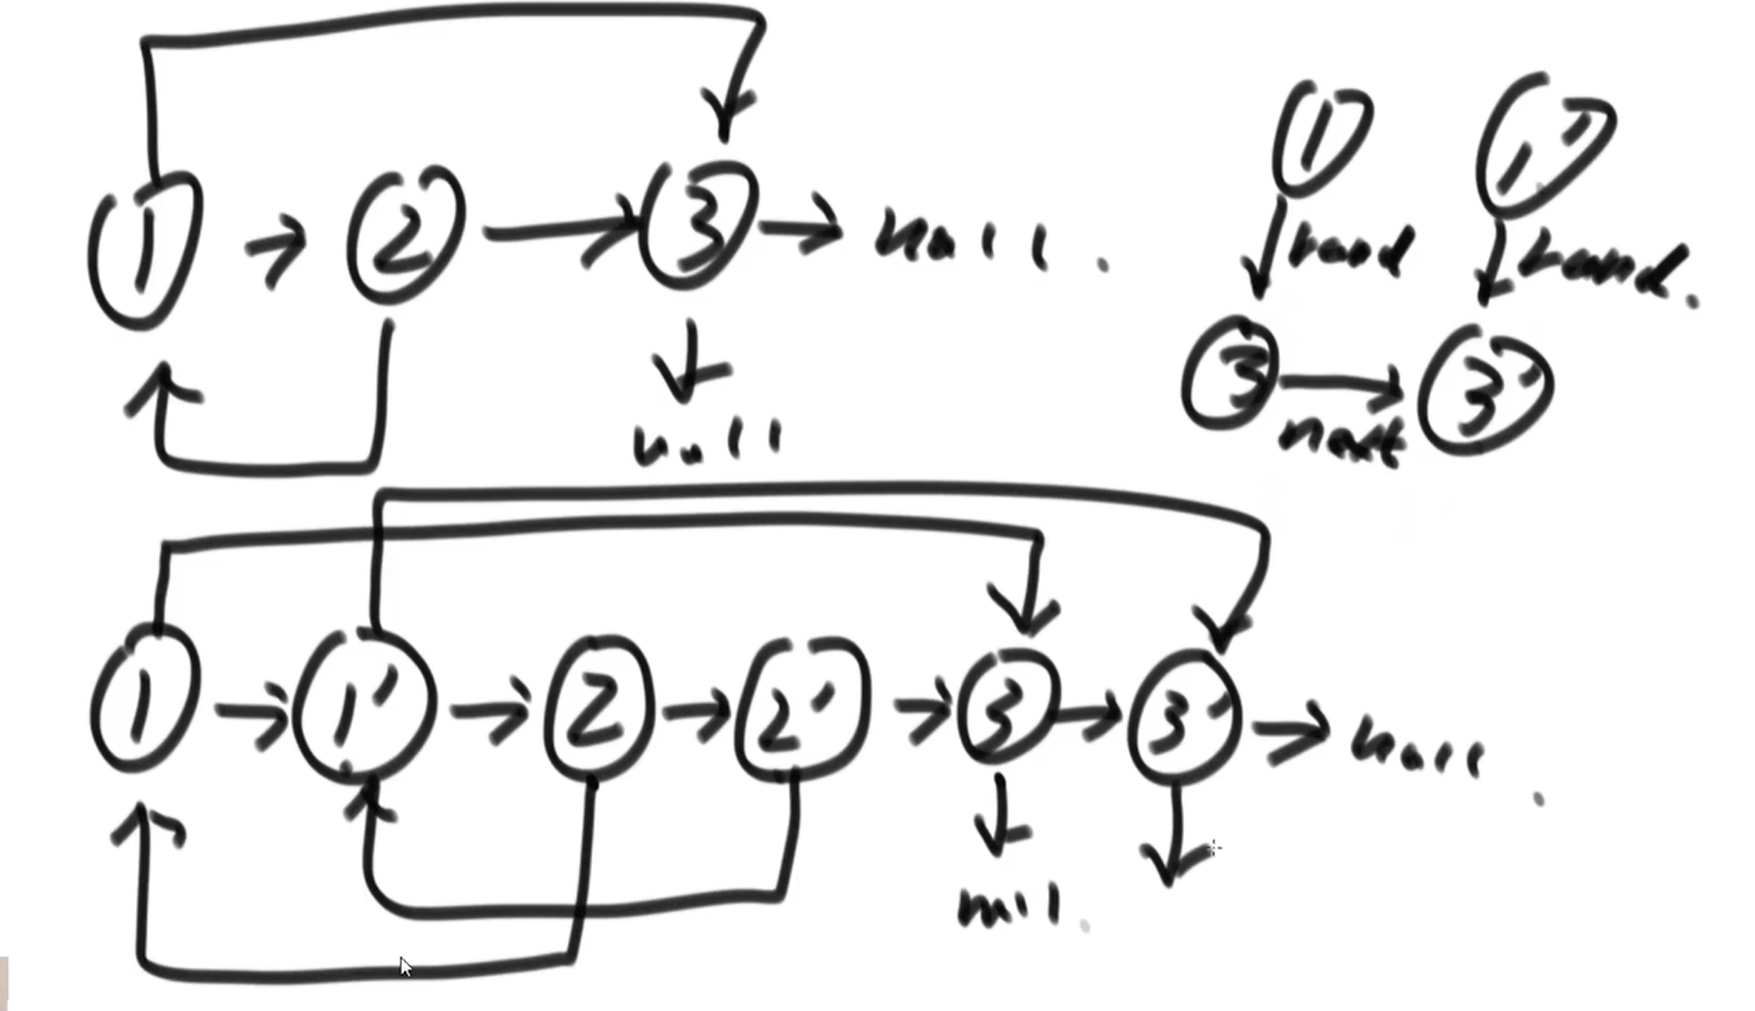 1 → 2 → 3 → null.
null
1 1'
rand rand.
3 → 3'
next
1 → 1' → 2 → 2' → 3 → 3' → null.
null